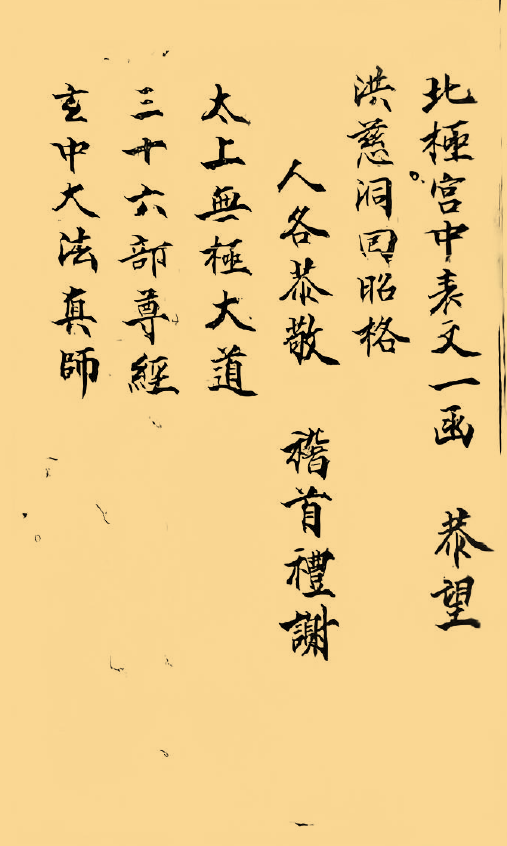 北極宫中表文一函 恭望
洪慈洞回昭格
人各恭敬 稽首禮謝
太上無極大道
三十六部尊經
玄中大法真師